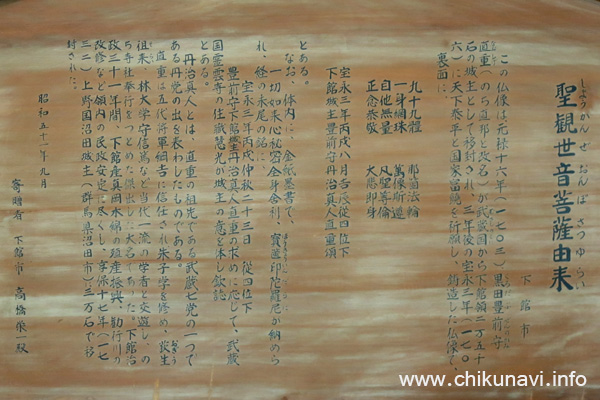 聖観世音菩薩由来
しょうかんぜおんぼさつゆらい
下館市
この仏像は元禄十六年(一七〇三)黒田豊前守
直重(のち直邦と改名)が武蔵国から下館領二万五千
石の城主として移封され、三年後の宝永三年(一七〇
六)に天下泰平と国家留穏を祈願し、鋳造した仏像で、
裏面に、
九十九種
一身網珠 萬像斯通
自他無量 凡聖等倫
正念恭敬 大悲即身
宝永三年丙戌八月吉辰従四位下
下館城主豊前守丹治真人直重頌
とある。
なお、体内に、金紙墨書で、
一切如来心秘密全身舎利、宝篋印陀羅尼が納めら
れ、経の末尾の銘に、
宝永三年丙戌仲秋二十三日 従四位下
豊前守下館城主丹治真人直重の求めに応じて、武蔵
国霊雲寺の住職慧光が城主の意を体し敬誌
とある。
丹治真人とは、直重の祖先である武蔵七党の一つで
ある丹党の出を表わしたものである。
直重は五代将軍綱吉に信任され朱子学を修め、荻生
祖来、林大学守信篤など当代一流の学者と交遊し、の
ち寺社奉行をつとめた傑出した大名であった。下館治
政三十一年間、下館産真岡木綿の殖産振興、勤行川の
改修など領内の民政安定に尽くし、享保十七年(一七
三二)上野国沼田城主(群馬県沼田市)三万石で移
封された。
昭和五十一年九月
寄贈者 下館市 高橋 一殿
www.chikunavi.info/